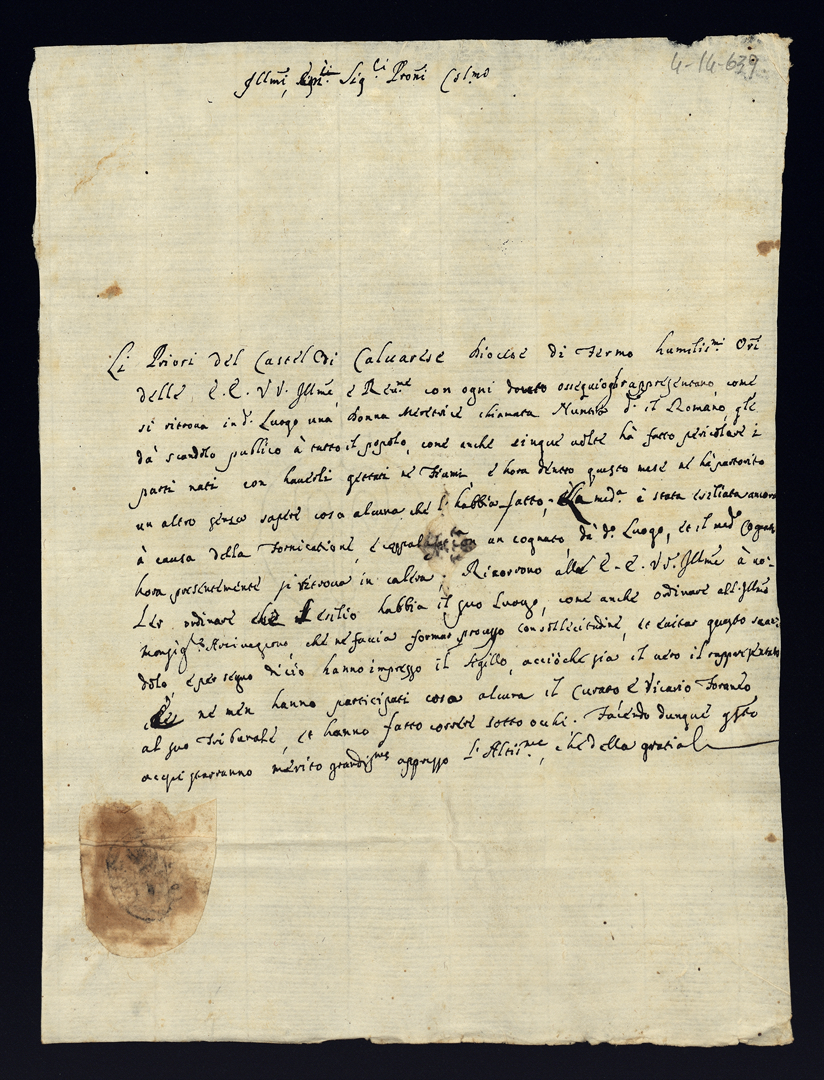 4-14-639.
Illmi, Sig.ri Proñi Col.mo
Li Priori del Castel di Caluarese Diocese di Fermo humilis.mi Ori
delle E. E. V V. Illme, e Reu.me con ogni ossequio rappresentano, come
si ritroua in d.o Luogo una Donna Meretrice chiamata d.o il Romano, q.le
dà scandolo publico à tutto il popolo, come anche cinque uolte hà fatto pericolare i
parti nati con hauerli gettati ne Fiumi, e hora dentro questo mese ne hà partorito
un altro senza sapere cosa alcuna che l'habbia fatto, La med.a è stata esiliata ancora
à causa della Fornicatione, e un cognato, dà d.o Luogo, et il med.o Cognato
hora presentemente si ritroua in Ricorrono alle E. E. VV. Illme à uo-
ler ordinare che l esilio habbia il suo Luogo, come anche ordinare all Illmo
Monsig.re Arciuescouo, che ne faccia formar processo con sollecitudine, et euitar questo scan-
dolo, e per segno di ciò hanno impresso il Sigillo, acciòche sia il uero il rappresentato
ne men hanno participati cosa alcura il Curato e Vicario Foraneo
al suo Tribunale, et hanno fatto correre sotto ochi. Facendo dunque q.sto
acquistarranno merito grandis.mo appresso l'Altis.mo, che della gratia